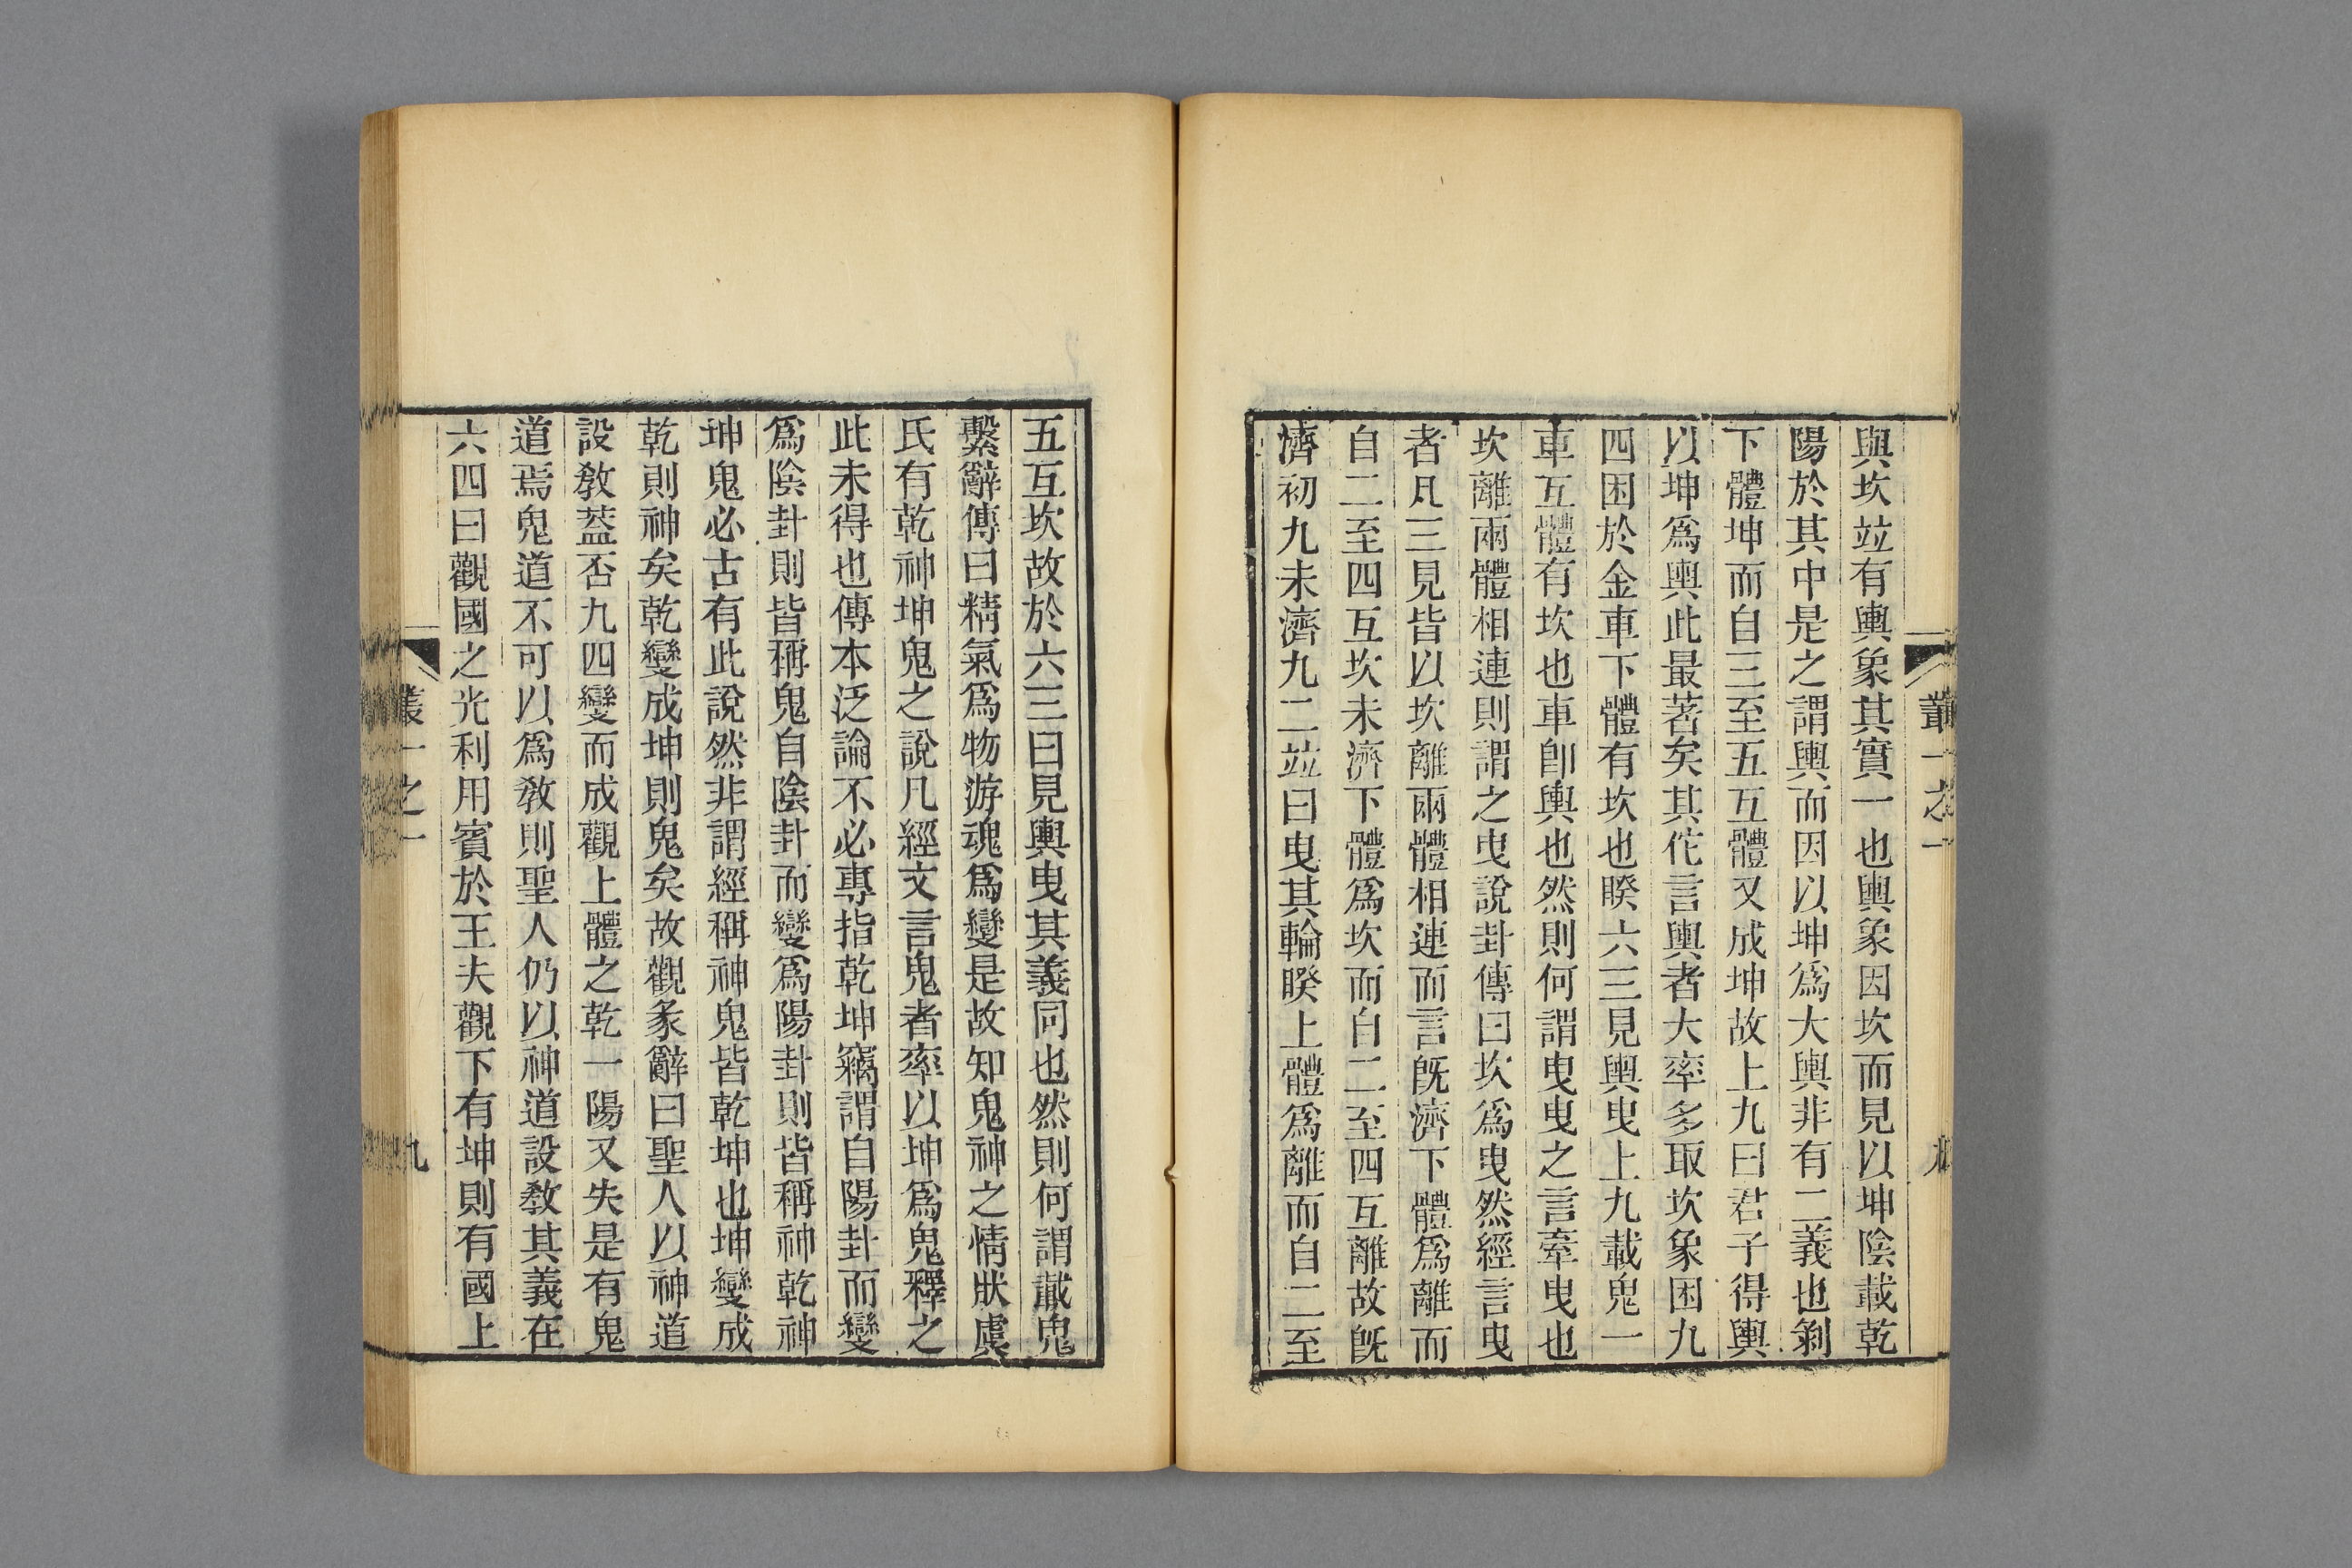 叢一之一
與坎竝有輿象其實一也輿象因坎而見以坤陰載乾
陽於其中是之謂輿而因以坤爲大輿非有二義也剝
下體坤而自三至五互體又成坤故上九曰君子得輿
以坤爲輿此最著矣其佗言輿者大率多取坎象困九
四困於金車下體有坎也睽六三見輿曳上九載鬼一
車互體有坎也車卽輿也然則何謂曳曳之言牽曳也
坎離兩體相連則謂之曳說卦傳曰坎爲曳然經言曳
者凡三見皆以坎離兩體相連而言旣濟下體爲離而
自二至四互坎未濟下體爲坎而自二至四互離故旣
濟初九未濟九二竝曰曳其輪睽上體爲離而自二至
五互坎故於六三曰見輿曳其義同也然則何謂載鬼
繫辭傳曰精氣爲物游魂爲變是故知鬼神之情狀虞
氏有乾神坤鬼之說凡經文言鬼者率以坤爲鬼釋之
此未得也傳本泛論不必專指乾坤竊謂自陽卦而變
爲陰卦則皆稱鬼自陰卦而變爲陽卦則皆稱神乾神
坤鬼必古有此說然非謂經稱神鬼皆乾坤也坤變成
乾則神矣乾變成坤則鬼矣故觀彖辭曰聖人以神道
設敎蓋否九四變而成觀上體之乾一陽又失是有鬼
道焉鬼道不可以爲敎則聖人仍以神道設敎其義在
六四曰觀國之光利用賓於王夫觀下有坤則有國上
叢一之一
九